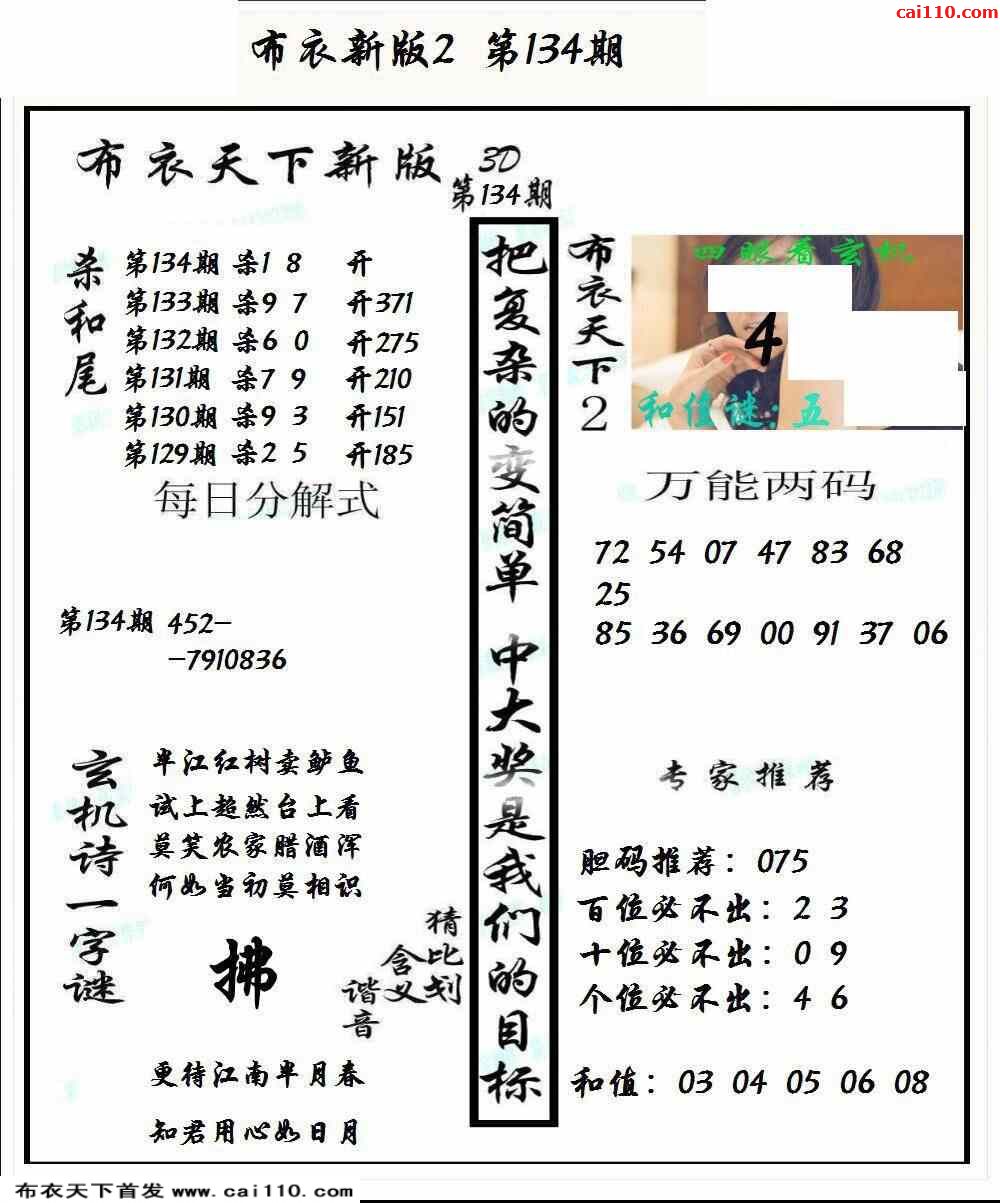 cai110.com
布衣新版2 第134期
布衣天下新版 3D
第134期
杀和尾
第134期 杀1 8 开
第133期 杀9 7 开371
第132期 杀6 0 开275
第131期 杀7 9 开210
第130期 杀9 3 开151
第129期 杀2 5 开185
每日分解式
第134期 452-
-7910836
玄机诗一字谜
半江红树卖鲈鱼
试上超然台上看
莫笑农家腊酒浑
何如当初莫相识
拂
猜比划
含义
谐音
更待江南半月春
知君用心如日月
把复杂的变简单 中大奖是我们的目标
布衣天下2
四眼看玄机
4
和值谜:五
万能两码
72 54 07 47 83 68
25
85 36 69 00 91 37 06
专家推荐
胆码推荐：075
百位必不出：2 3
十位必不出：0 9
个位必不出：4 6
和值：03 04 05 06 08
布衣天下首发 www.cai110.com